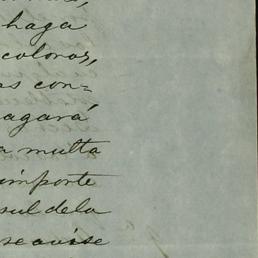 haga
colores,
es con=
agará
a multa
importe
sul de la
se avise